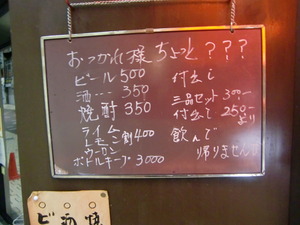 おつかれ様 ちょっと???
ビール500
酒… 350
焼酎 350
ライム
レモン
ウーロン
割400
ボトルキープ 3000
付出し
三品セット 300-
付出し 250-
より
飲んで
帰りません
ビ 酒 焼